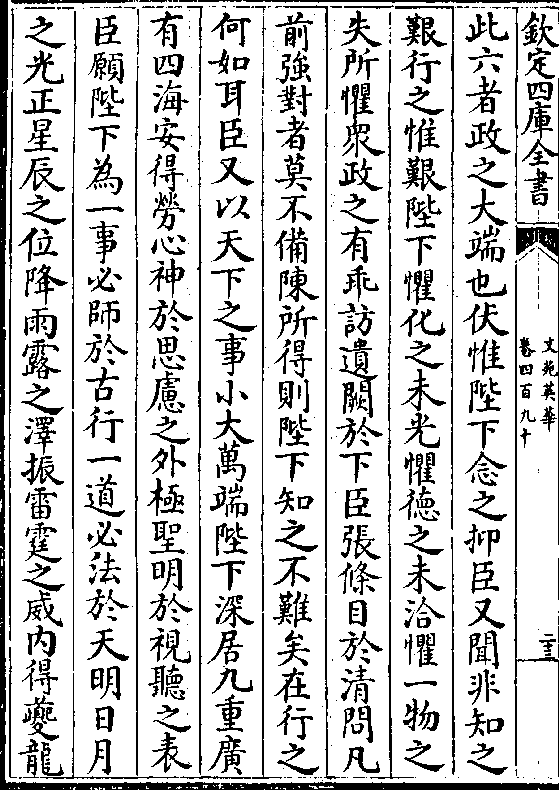 欽定四庫全書
文苑英華
卷四百九十
二十三
此六者政之大端也伏惟陛下念之抑臣又聞非知之
艱行之惟艱陛下懼化之未光懼德之未洽懼一物之
失所懼衆政之有乖訪遺闕於下臣張條目於清問凡
前強對者莫不備陳所得則陛下知之不難矣在行之
何如耳臣又以天下之事小大萬端陛下深居九重廣
有四海安得勞心神於思慮之外極聖明於視聽之表
臣願陛下為一事必師於古行一道必法於天明日月
之光正星辰之位降雨露之澤振雷霆之威内得夔龍